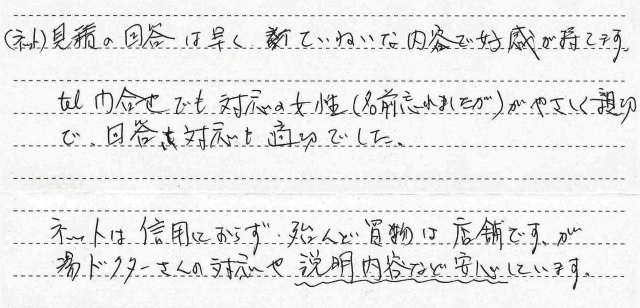 (ネット)見積の回答は早く 数ていねいな内容で好感が持てます。
tel 内合せでも対応の女性(名前忘れましたが)がやさしく親切
で、回答も対応も適切でした。
ネットは信用しておらず、殆んど買物は店舗です、が
湯ドクターさんの対応や説明内容など安心しています。